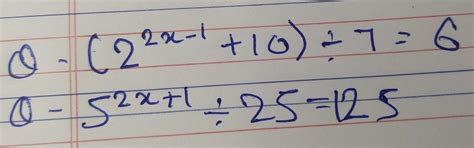 Q - (2^{2x-1} + 10) ÷ 7 = 6
Q - 5^{2x+1} ÷ 25 = 125